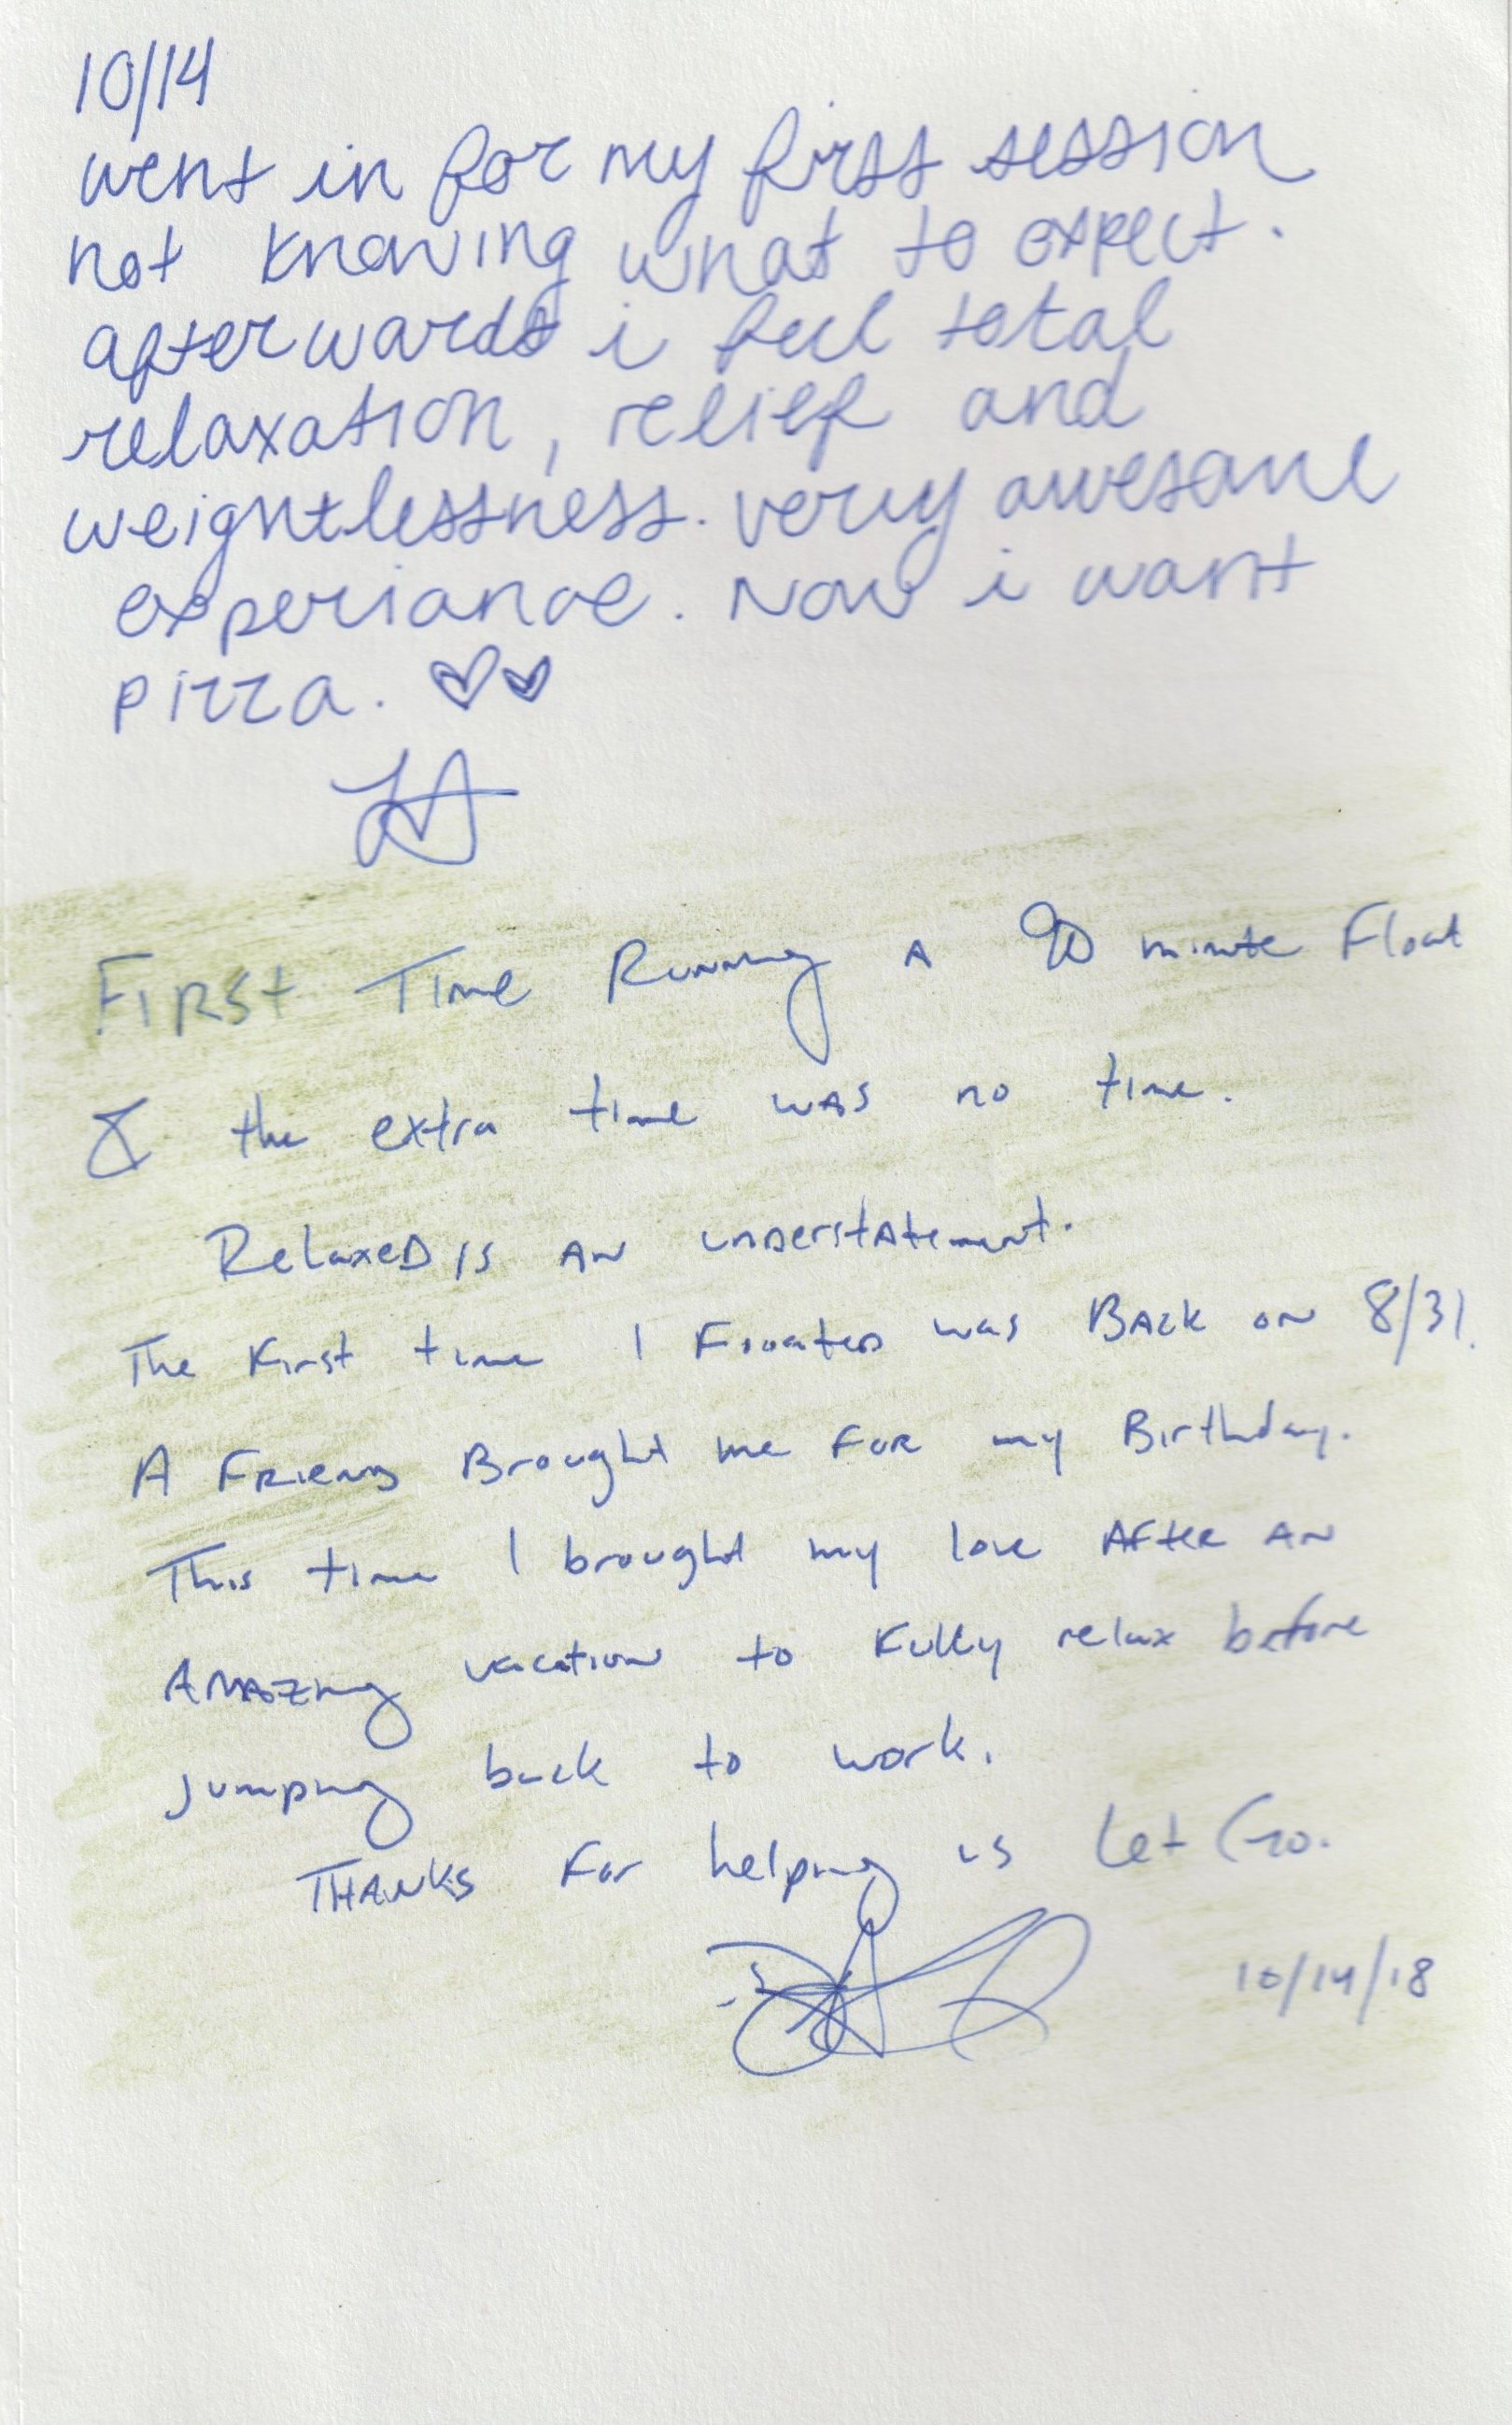 10/14
went in for my first session
not knowing what to expect.
afterwards i feel total
relaxation, relief and
weightlessness. very awesome
experiance. Now i want
pizza. ♡♡
First Time Running A 90 minute Float
& the extra time was no time.
Relaxed is an understatement.
The First time I Floated was Back on 8/31.
A Friend Brought me For my Birthday.
This time I brought my love After an
Amazing vacation to Fully relax before
jumping back to work.
Thanks For helping us Let Go.
10/14/18